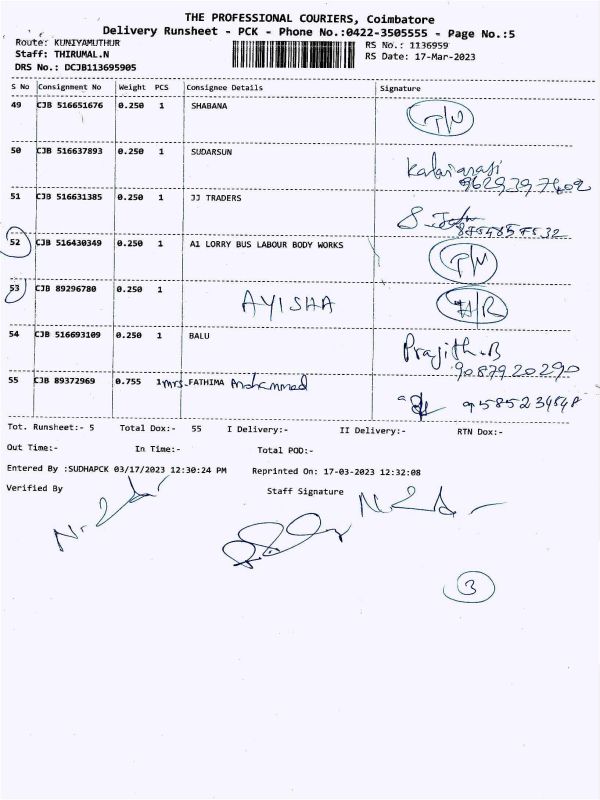 THE PROFESSIONAL COURIERS, Coimbatore
Delivery Runsheet - PCK - Phone No.:0422-3505555 - Page No.:5
Route: KUNIYAMUTHUR RS No.: 1136959
Staff: THIRUMAL.N RS Date: 17-Mar-2023
DRS No.: DCJB113695905
S No Consignment No Weight PCS Consignee Details Signature
49 CJB 516651676 0.250 1 SHABANA
50 CJB 516637893 0.250 1 SUDARSUN Kalaiarasi
9629397402
51 CJB 516631385 0.250 1 JJ TRADERS
52 CJB 516430349 0.250 1 A1 LORRY BUS LABOUR BODY WORKS
53 CJB 89296780 0.250 1 AYISHA
54 CJB 516693109 0.250 1 BALU Prajith.B
9087920290
55 CJB 89372969 0.755 1 mrs. FATHIMA mohammad
Tot. Runsheet:- 5 Total Dox:- 55 I Delivery:- II Delivery:- RTN Dox:-
Out Time:- In Time:- Total POD:-
Entered By :SUDHAPCK 03/17/2023 12:30:24 PM Reprinted On: 17-03-2023 12:32:08
Verified By Staff Signature
3